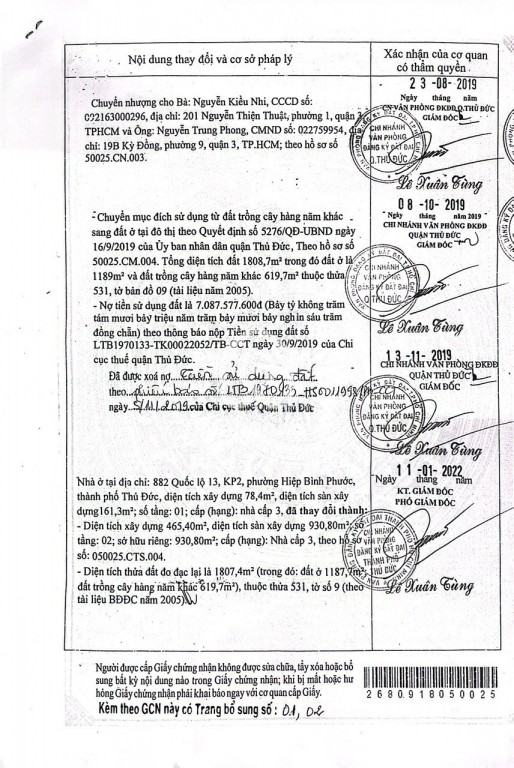 Nội dung thay đổi và cơ sở pháp lý
Xác nhận của cơ quan
có thẩm quyền
Chuyển nhượng cho Bà: Nguyễn Kiều Nhi, CCCD số:
092163000296, địa chỉ: 201 Nguyễn Thiện Thuật, phường 1, quận 3,
TPHCM và Ông: Nguyễn Trung Phong, CMND số: 022759954, địa
chỉ: 19B Kỳ Đồng, phường 9, quận 3, TP.HCM; theo hồ sơ số
50025.CN.003.
23-08-2019
Ngày tháng năm
CN VĂN PHÒNG ĐKĐĐ.Q.THỦ ĐỨC
GIÁM ĐỐC
CHI NHÁNH
VĂN PHÒNG
ĐĂNG KÝ ĐẤT ĐAI
Q.THỦ ĐỨC
Lê Xuân Tùng
Chuyển mục đích sử dụng từ đất trồng cây hàng năm khác
sang đất ở tại đô thị theo Quyết định số 5276/QĐ-UBND ngày
16/9/2019 của Ủy ban nhân dân quận Thủ Đức, Theo hồ sơ số
50025.CM.004. Tổng diện tích đất 1808,7m² trong đó đất ở là
1189m² và đất trồng cây hàng năm khác 619,7m² thuộc thửa
531, tờ bản đồ 09 (tài liệu năm 2005).
- Nợ tiền sử dụng đất là 7.087.577.600đ (Bảy tỷ không trăm
tám mươi bảy triệu năm trăm bảy mươi bảy nghìn sáu trăm
đồng chẵn) theo thông báo nộp Tiền sử dụng đất số
LTB1970133-TK00022052/TB-CCT ngày 30/9/2019 của Chi
cục thuế quận Thủ Đức.
08-10-2019
Ngày tháng năm 2019
CHI NHÁNH VĂN PHÒNG ĐKĐĐ
QUẬN THỦ ĐỨC
GIÁM ĐỐC
CHI NHÁNH
VĂN PHÒNG
ĐĂNG KÝ ĐẤT ĐAI
Q.THỦ ĐỨC
Lê Xuân Tùng
Đã được xoá nợ tiền sử dụng đất
theo
ngày 5/11/2019 của Chi cục thuế Quận Thủ Đức
13-11-2019
CHI NHÁNH VĂN PHÒNG ĐKĐĐ
QUẬN THỦ ĐỨC
GIÁM ĐỐC
CHI NHÁNH
VĂN PHÒNG
ĐĂNG KÝ ĐẤT ĐAI
Q.THỦ ĐỨC
Lê Xuân Tùng
Nhà ở tại địa chỉ: 882 Quốc lộ 13, KP2, phường Hiệp Bình Phước,
thành phố Thủ Đức, diện tích xây dựng 78,4m², diện tích sàn xây
dựng161,3m²; số tầng: 01; cấp (hạng): nhà cấp 3, đã thay đổi thành:
- Diện tích xây dựng 465,40m², diện tích sàn xây dựng 930,80m²; số
tầng: 02; sở hữu riêng: 930,80m²; cấp (hạng): Nhà cấp 3, theo hồ sơ
số: 050025.CTS.004.
- Diện tích thửa đất đo đạc lại là 1807,4m² (trong đó: đất ở 1187,7m²,
đất trồng cây hàng năm khác 619,7m²), thuộc thửa 531, tờ số 9 (theo
tài liệu BĐĐC năm 2005)
11-01-2022
Ngày tháng năm
KT. GIÁM ĐỐC
PHÓ GIÁM ĐỐC
CHI NHÁNH
VĂN PHÒNG
ĐĂNG KÝ ĐẤT ĐAI
THÀNH PHỐ
THỦ ĐỨC
Lê Xuân Tùng
Người được cấp Giấy chứng nhận không được sửa chữa, tẩy xóa hoặc bổ
sung bất kỳ nội dung nào trong Giấy chứng nhận; khi bị mất hoặc hư
hỏng Giấy chứng nhận phải khai báo ngay với cơ quan cấp Giấy.
Kèm theo GCN này có Trang bổ sung số: 01, 02
2680918050025